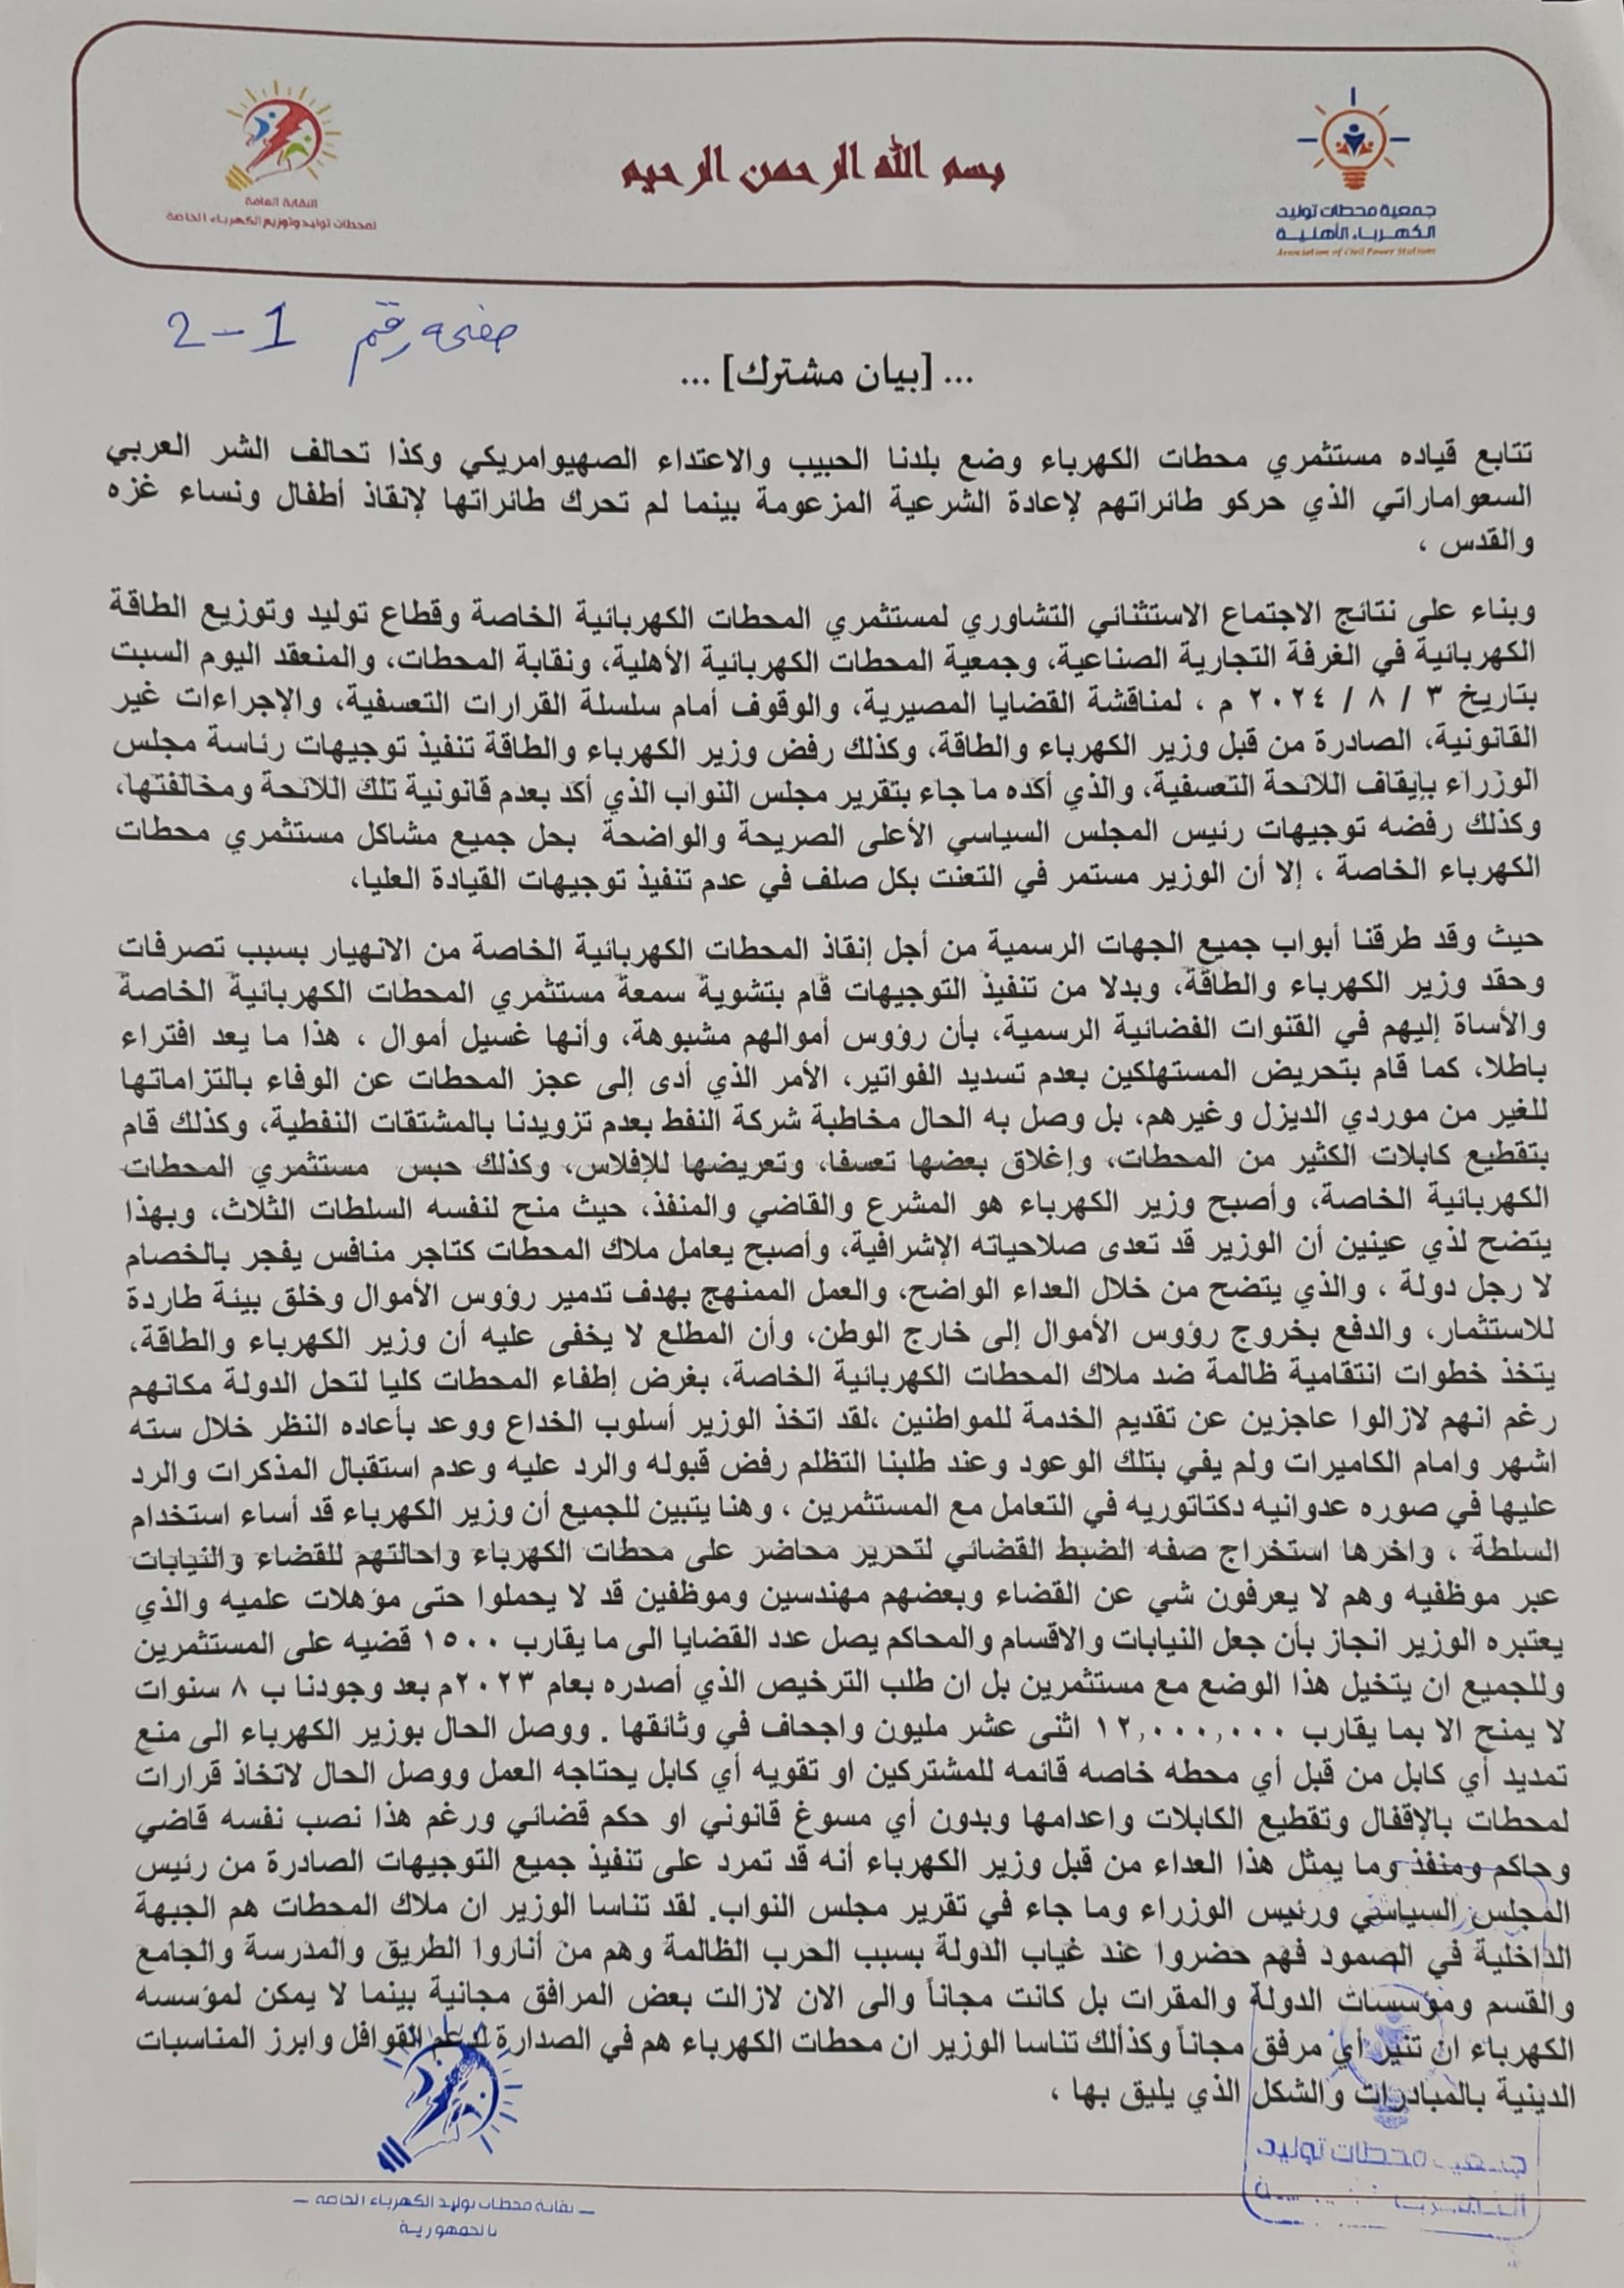 بسم الله الرحمن الرحيم
النقابة العامة
لمحطات توليد وتوزيع الكهرباء الخاصة
جمعية محطات توليد
الكهرباء الأهلية
Association of Civil Power Stations
صفحه رقم 1-2
... [بيان مشترك] ...
تتابع قياده مستثمري محطات الكهرباء وضع بلدنا الحبيب والاعتداء الصهيوامريكي وكذا تحالف الشر العربي
السعواماراتي الذي حركو طائراتهم لإعادة الشرعية المزعومة بينما لم تحرك طائراتها لإنقاذ أطفال ونساء غزه
والقدس ،
وبناء على نتائج الاجتماع الاستثنائي التشاوري لمستثمري المحطات الكهربائية الخاصة وقطاع توليد وتوزيع الطاقة
الكهربائية في الغرفة التجارية الصناعية، وجمعية المحطات الكهربائية الأهلية، ونقابة المحطات، والمنعقد اليوم السبت
بتاريخ ٣ / ٨ / ٢٠٢٤ م ، لمناقشة القضايا المصيرية، والوقوف أمام سلسلة القرارات التعسفية، والإجراءات غير
القانونية، الصادرة من قبل وزير الكهرباء والطاقة، وكذلك رفض وزير الكهرباء والطاقة تنفيذ توجيهات رئاسة مجلس
الوزراء بإيقاف اللائحة التعسفية، والذي أكده ما جاء بتقرير مجلس النواب الذي أكد بعدم قانونية تلك اللائحة ومخالفتها،
وكذلك رفضه توجيهات رئيس المجلس السياسي الأعلى الصريحة والواضحة بحل جميع مشاكل مستثمري محطات
الكهرباء الخاصة ، إلا أن الوزير مستمر في التعنت بكل صلف في عدم تنفيذ توجيهات القيادة العليا،
حيث وقد طرقنا أبواب جميع الجهات الرسمية من أجل إنقاذ المحطات الكهربائية الخاصة من الانهيار بسبب تصرفات
وحقد وزير الكهرباء والطاقة، وبدلا من تنفيذ التوجيهات قام بتشوية سمعة مستثمري المحطات الكهربائية الخاصة
والأساة إليهم في القنوات الفضائية الرسمية، بأن رؤوس أموالهم مشبوهة، وأنها غسيل أموال ، هذا ما يعد افتراء
باطلا، كما قام بتحريض المستهلكين بعدم تسديد الفواتير، الأمر الذي أدى إلى عجز المحطات عن الوفاء بالتزاماتها
للغير من موردي الديزل وغيرهم، بل وصل به الحال مخاطبة شركة النفط بعدم تزويدنا بالمشتقات النفطية، وكذلك قام
بتقطيع كابلات الكثير من المحطات، وإغلاق بعضها تعسفا، وتعريضها للإفلاس، وكذلك حبس مستثمري المحطات
الكهربائية الخاصة، وأصبح وزير الكهرباء هو المشرع والقاضي والمنفذ، حيث منح لنفسه السلطات الثلاث، وبهذا
يتضح لذي عينين أن الوزير قد تعدى صلاحياته الإشرافية، وأصبح يعامل ملاك المحطات كتاجر منافس يفجر بالخصام
لا رجل دولة ، والذي يتضح من خلال العداء الواضح، والعمل الممنهج بهدف تدمير رؤوس الأموال وخلق بيئة طاردة
للاستثمار، والدفع بخروج رؤوس الأموال إلى خارج الوطن، وأن المطلع لا يخفى عليه أن وزير الكهرباء والطاقة،
يتخذ خطوات انتقامية ظالمة ضد ملاك المحطات الكهربائية الخاصة، بغرض إطفاء المحطات كليا لتحل الدولة مكانهم
رغم انهم لازالوا عاجزين عن تقديم الخدمة للمواطنين ،لقد اتخذ الوزير أسلوب الخداع ووعد بأعاده النظر خلال سته
اشهر وامام الكاميرات ولم يفي بتلك الوعود وعند طلبنا التظلم رفض قبوله والرد عليه وعدم استقبال المذكرات والرد
عليها في صوره عدوانيه دكتاتوريه في التعامل مع المستثمرين ، وهنا يتبين للجميع أن وزير الكهرباء قد أساء استخدام
السلطة ، واخرها استخراج صفه الضبط القضائي لتحرير محاضر على محطات الكهرباء واحالتهم للقضاء والنيابات
عبر موظفيه وهم لا يعرفون شي عن القضاء وبعضهم مهندسين وموظفين قد لا يحملوا حتى مؤهلات علميه والذي
يعتبره الوزير انجاز بأن جعل النيابات والاقسام والمحاكم يصل عدد القضايا الى ما يقارب ١٥٠٠ قضيه على المستثمرين
وللجميع ان يتخيل هذا الوضع مع مستثمرين بل ان طلب الترخيص الذي أصدره بعام ٢٠٢٣م بعد وجودنا ب ٨ سنوات
لا يمنح الا بما يقارب ١٢,٠٠٠,٠٠٠ اثنى عشر مليون واجحاف في وثائقها . ووصل الحال بوزير الكهرباء الى منع
تمديد أي كابل من قبل أي محطه خاصه قائمه للمشتركين او تقويه أي كابل يحتاجه العمل ووصل الحال لاتخاذ قرارات
لمحطات بالإقفال وتقطيع الكابلات واعدامها وبدون أي مسوغ قانوني او حكم قضائي ورغم هذا نصب نفسه قاضي
وحاكم ومنفذ وما يمثل هذا العداء من قبل وزير الكهرباء أنه قد تمرد على تنفيذ جميع التوجيهات الصادرة من رئيس
المجلس السياسي ورئيس الوزراء وما جاء في تقرير مجلس النواب. لقد تناسا الوزير ان ملاك المحطات هم الجبهة
الداخلية في الصمود فهم حضروا عند غياب الدولة بسبب الحرب الظالمة وهم من أناروا الطريق والمدرسة والجامع
والقسم ومؤسسات الدولة والمقرات بل كانت مجاناً والى الان لازالت بعض المرافق مجانية بينما لا يمكن لمؤسسه
الكهرباء ان تنير أي مرفق مجاناً وكذألك تناسا الوزير ان محطات الكهرباء هم في الصدارة لدعم القوافل وابرز المناسبات
الدينية بالمبادرات والشكل الذي يليق بها ،
جمعية محطات توليد
نقابة محطات توليد الكهرباء الخاصة
بالجمهورية